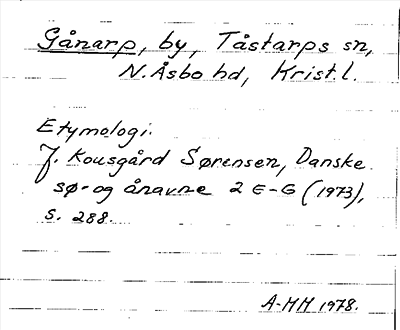 Gånarp, by, Tåstarps sn,
N. Åsbo hd, Krist. l.
Etymologi.
J. Kousgård Sørensen, Danske
sø- og ånavne 2 E-G (1973),
s. 288.
A-MH 1978.